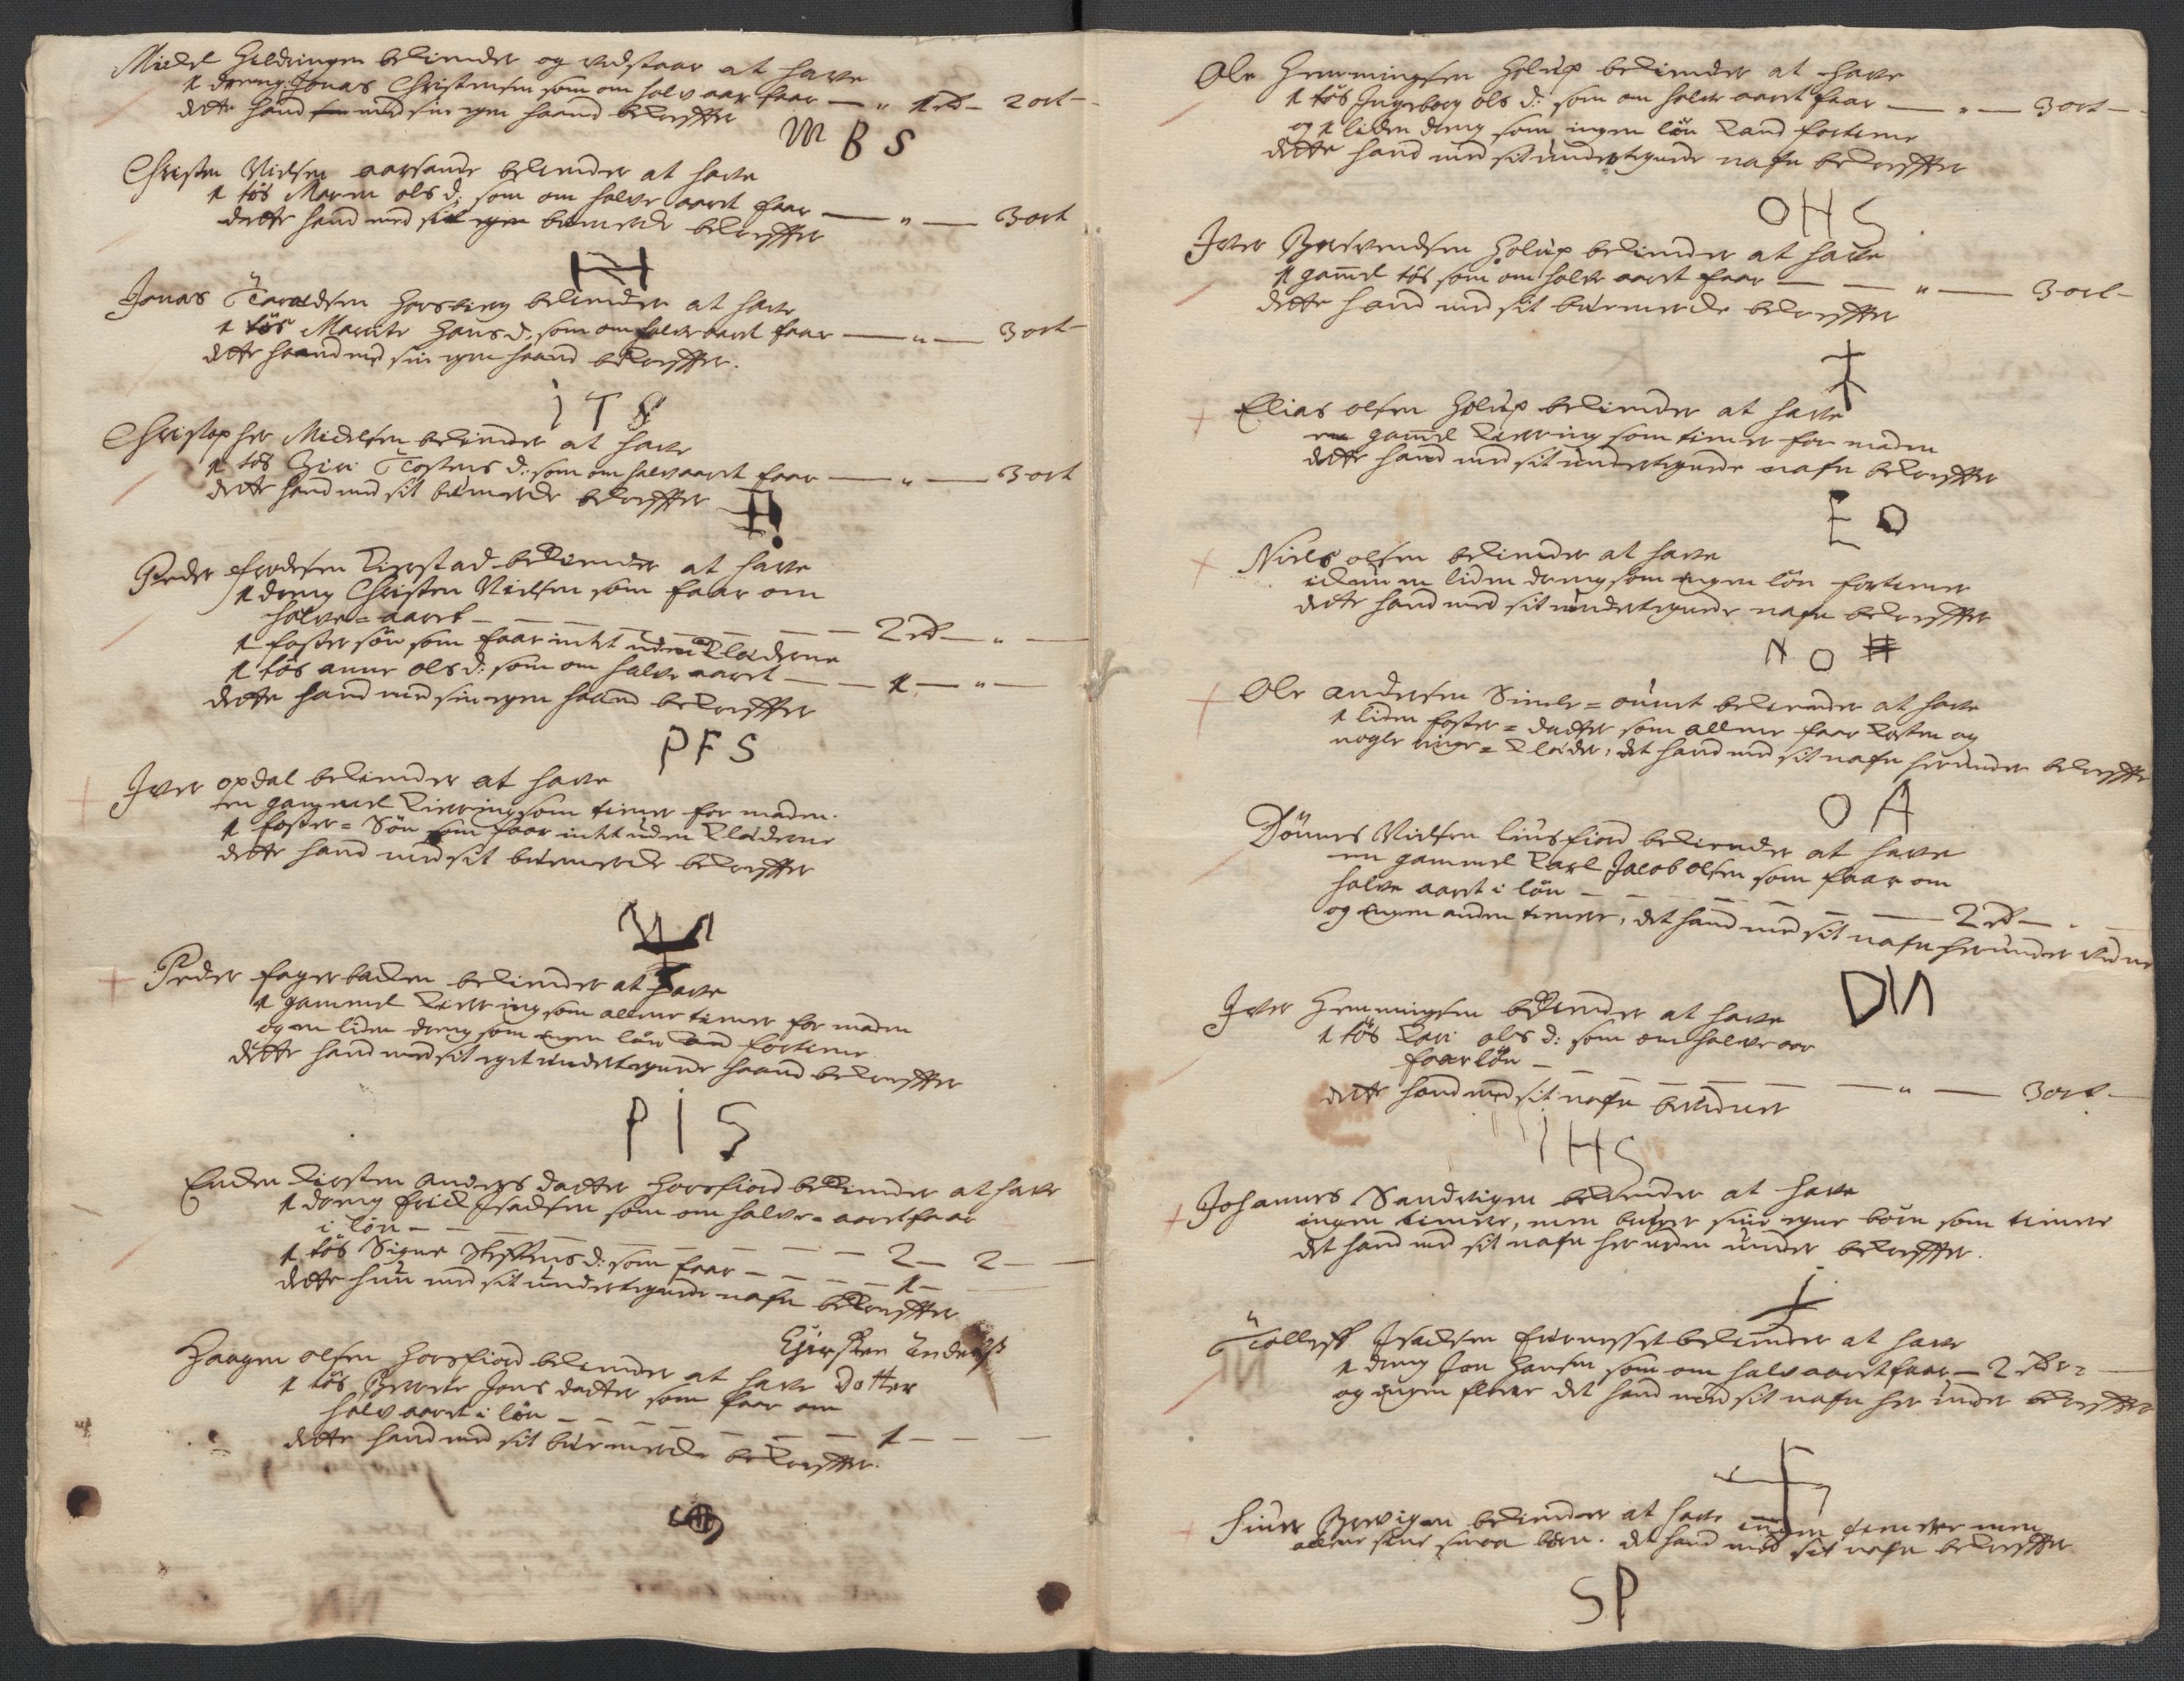 Michel Hildringen bekiender og vedstaar at have
1 dreng Jonas Christensen som om halv aar faar — " 1 rd — 2 ort —
dette hand med sin egen haand bekrefter
M B S
Christen Nielsen aarsande bekiender at have
1 tøs Maren ols d: som om halve aaret faar — " — 3 ort
dette hand med sit egen bumerke bekrefter
Jonas Taraldsen Horsberg bekiender at have
1 tøs Marite Hans d. som om halve aaret faar — " — 3 ort —
dette haand med sin egen haand bekrefter.
I T S
Christopher Michelsen bekiender at have
1 tøs Siri Tostens d: som om halv aaret faar — " — 3 ort
dette hand med sit bumerke bekrefter
H
Peder fredsen Tierstad bekiender at have
1 dreng Christen Nielsen som faar om
halve = aaret — — — 2 rd — " —
1 foster søn som faar intet uden Klæderne
1 tøs anne ols d: som om halve aaret — — 1 — " —
dette hand med sin egen haand bekrefter
P F S
Iver opdal bekiender at have
en gammel Kierring som tiener for maden.
1 foster = Søn som faar intet uden Klæderne
dette hand med sit bumerke bekrefter
Peder fagerbacken bekiender at have
1 gammel Kierring som allene tiener for maden
og en liden dreng som ingen løn kand fortiene
dette hand med sit eget undertegnede haand bekrefter
P I S
Encken Kirsten Anders datter Horsfiord bekiender at have
1 dreng Erich Isachsen som om halve = aaret faar
i løn — — — 2 — 2 —
1 tøs Signe Steffens d: som faar — — — 1 —
dette hun med sit undertegnede nafn bekrefter
Kjirsten Anders
Dotter
Haagen olsen Horsfiord bekiender at have
1 tøs Berrete Jons datter som faar om
halv aaret i løn — — — 1 — —
dette hand med sit bumerke bekrefter.
Ole Hemmingsen Holup bekiender at have
1 tøs Ingeborg ols d: som om halve aaret faar — " — 3 ort —
og 1 liden dreng som ingen løn kand fortiene
dette hand med sit undertegnede nafn bekrefter
O H S
Iver Bersvendsen Holup bekiender at have
1 gam̄el tøs som om halve aaret faar — — " — 3 ort —
dette hand med sit bumerke bekrefter
Elias olsen Holup bekiender at have
en gam̄el Kierring som tiener for maden
dette hand med sit undertegnede nafn bekrefter
E O
Niels olsen bekiender at have
ickun en liden dreng som ingen løn fortiener
dette hand med sit undertegnede nafn bekrefter
N O
Ole andersen bekiender at have
1 liden foster = datter som allene faar Kosten og
nogle ringe = Klæder, det hand med sit nafn herunder bekrefter
O A
Dønnes Nielsen liusfiord bekiender at have
en gammel Karl Jacob olsen som faar om
halve aaret i løn — — — 2 rd — "
og ingen anden tienere, det hand med sit nafn herunder
D N
Iver Hemmingsen bekiender at have
1 tøs Kari ols d: som om halve aar
faar løn — — — " — 3 ort —
dette hand med sit nafn bevidner
I H S
Johannes Sandvigen bekiender at have
ingen tienere, men bruger sine egne børn som tiener
det hand med sit nafn her neden under bekrefter.
Tolleff Isachsen furnesset bekiender at have
1 dreng Jon Hansen som om halv aaret faar — 2 rdr =
og ingen flere det hand med sit nafn her under bekrefter
Siver Brevigen bekiender at have ingen tienere men
allene sine smaa børn. det hand med sit nafn bekrefter
S P